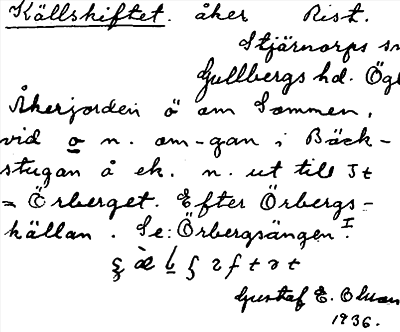 Källskiftet. åker Rist.
Stjärnorps sn
Gullbergs hd. Ögl
Åkerjorden ö om Tommen,
vid o n. om-gan i Bäck-
stugan å ek. n. ut till St
= Örberget. Efter Örbergs-
källan. Se: Örbergsängen I.
Gustaf E. Olsson
1936.